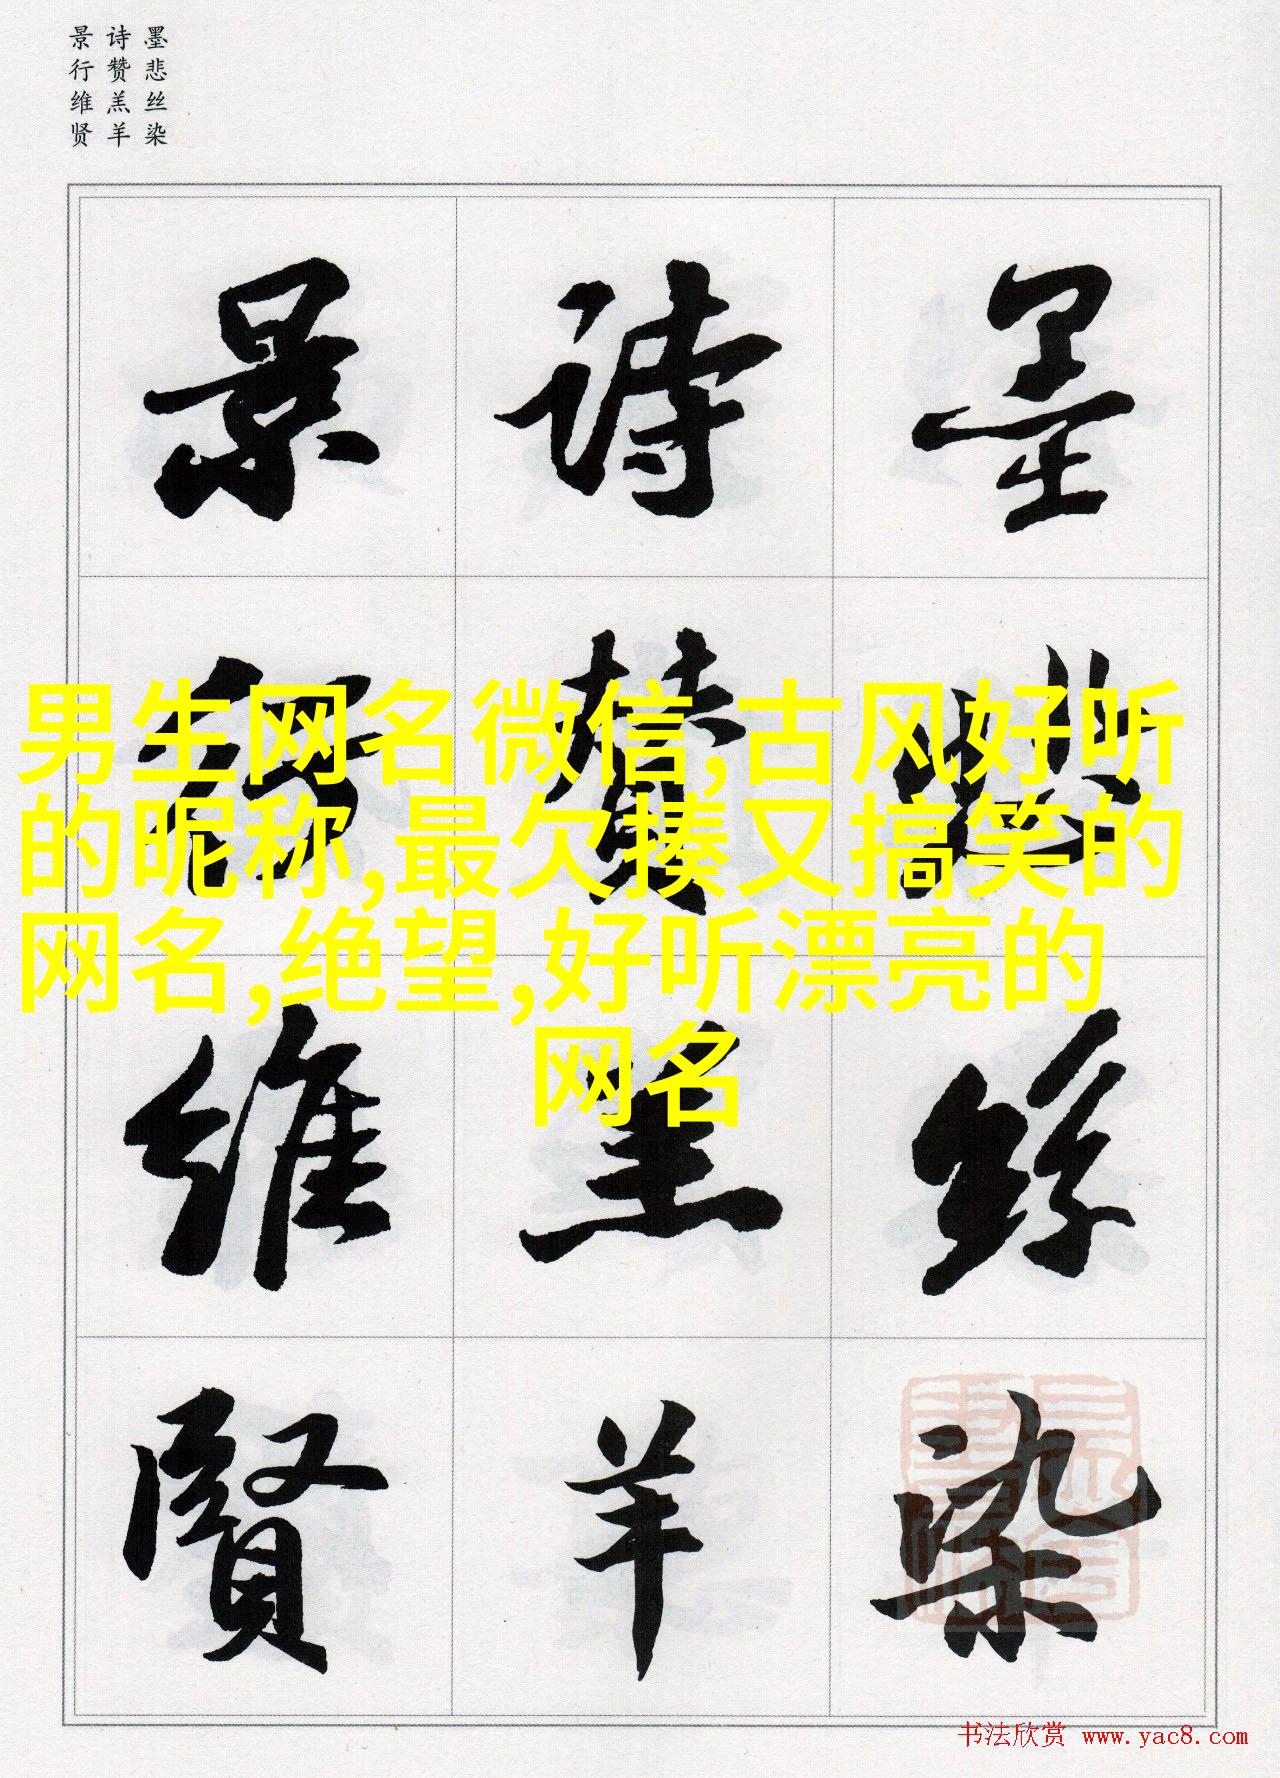 墨悲丝染
诗赞羔羊
景行维贤
墨悲絲染
詩贊羔羊
景行維賢
男生网名微信,古风好听
的昵称,最欠揍又搞笑的
网名,绝望,好听漂亮的
网名
书法欣赏 www.yac8.com